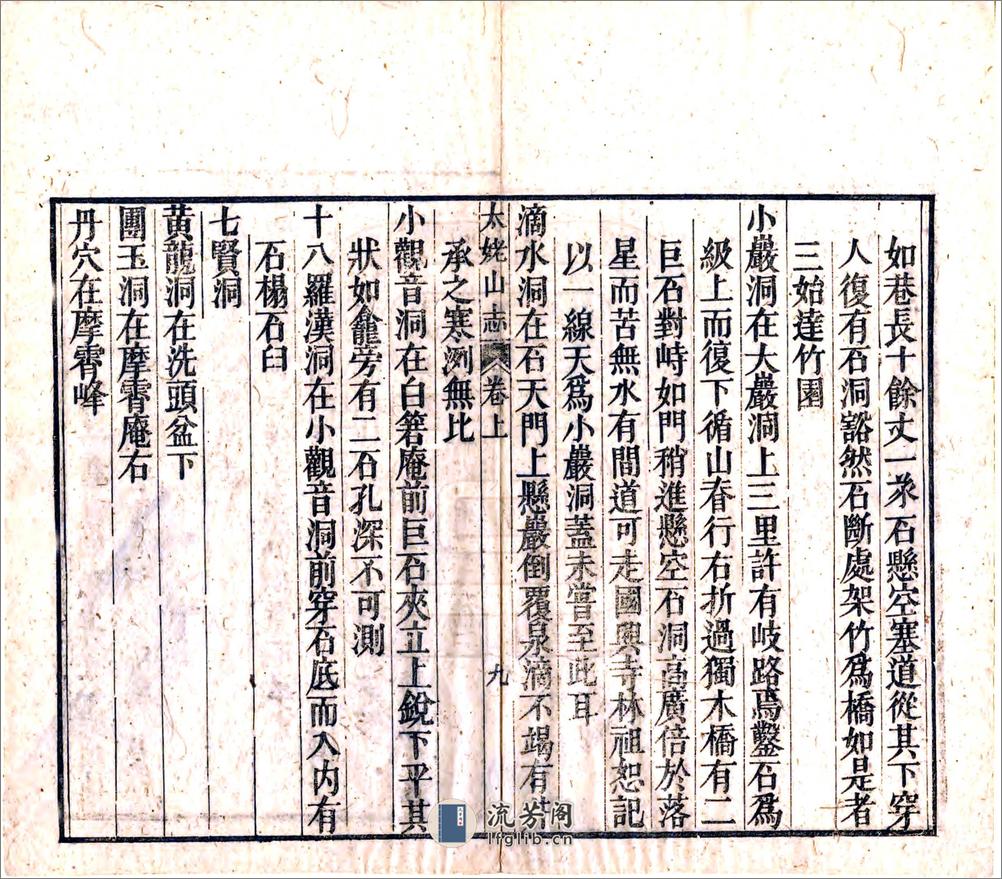 如巷長十餘丈一永石懸空塞道從其下穿
人復有石洞豁然石斷處架竹爲橋如是者
三始達竹園
小巖洞在大巖洞上三里許有岐路焉鑿石爲
級上而復下循山脊行右折過獨木橋有二
巨石對峙如門稍進懸空石洞高廣倍於落
星而苦無水有間道可走國興寺林祖恕記
以一線天爲小巖洞蓋未嘗至此耳
滴水洞在石天門上懸巖倒覆泉滴不竭有
太姥山志 卷上 九
承之寒冽無比
小觀音洞在白箬庵前巨石夾立上銳下平其
狀如龕旁有二石孔深不可測
十八羅漢洞在小觀音洞前穿石底而入內有
石榻石臼
七賢洞
黃龍洞在洗頭盆下
團玉洞在摩霄庵右
丹穴在摩霄峰
流芳阁
lfglib.cn